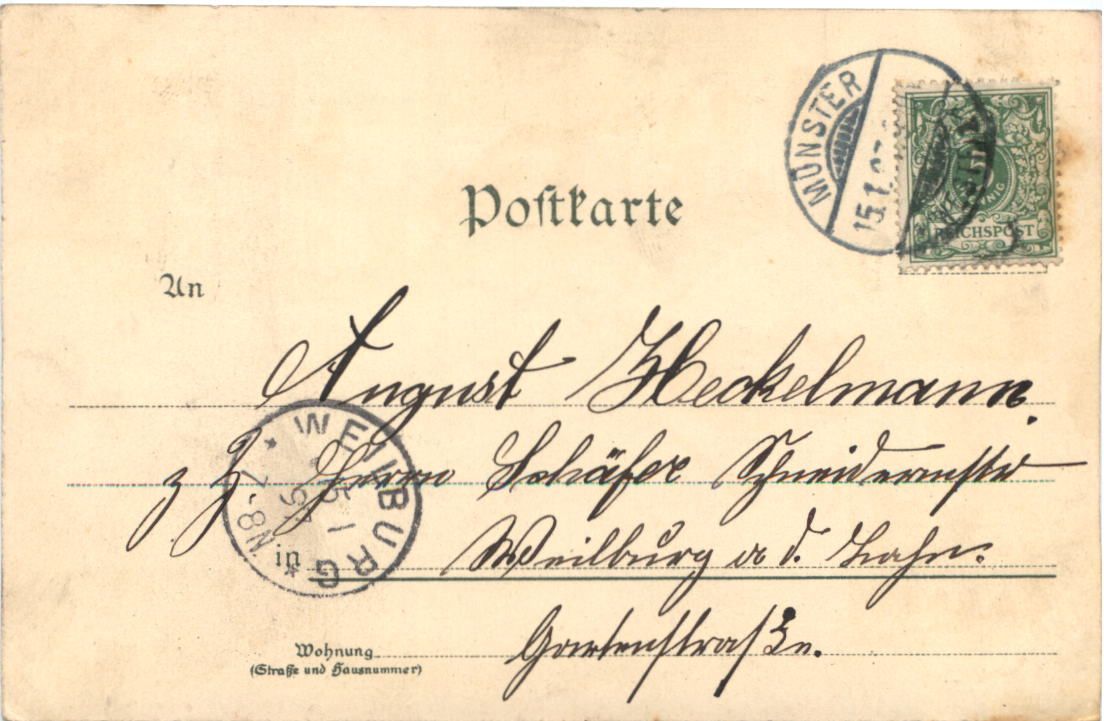 MÜNSTER
15.1.97
REICHSPOST
Postkarte
An
August Heckelmann.
z Z. Herrn Schäfer Schneidermstr
WEILBURG
15 1
97
7-8N
in Weilburg a d. Lahn.
Gartenstraße.
Wohnung
(Straße und Hausnummer)